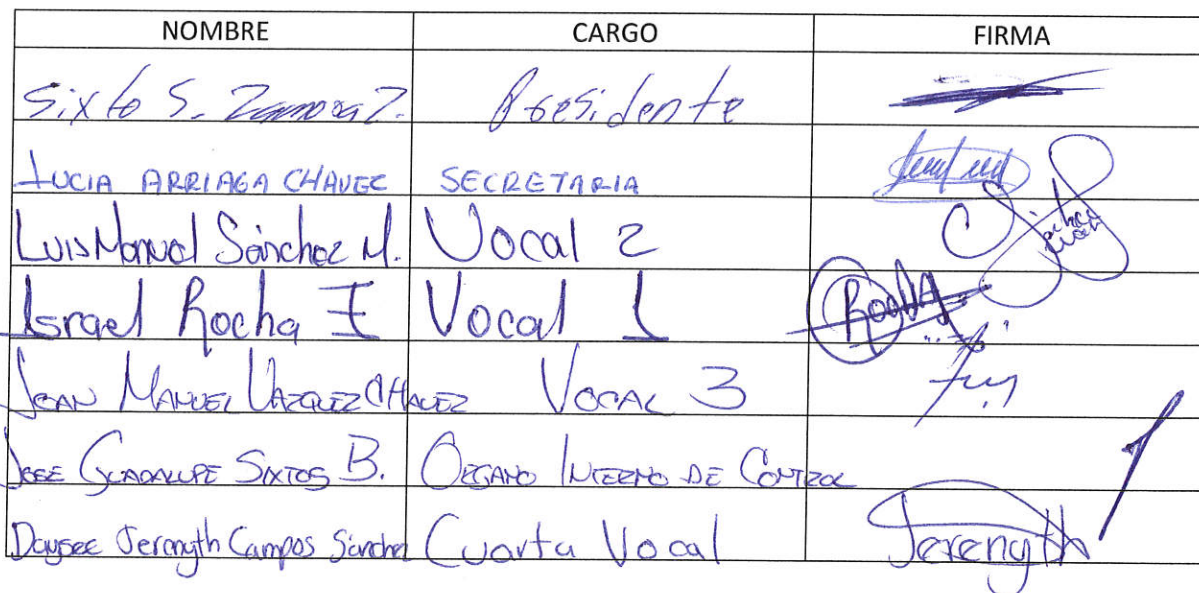 NOMBRE CARGO FIRMA
Sixto S. Zamora Z. Presidente
LUCIA ARRIAGA CHAVEZ SECRETARIA
Luis Manuel Sánchez M. Vocal 2
Israel Rocha I Vocal 1 Rocha
JUAN MANUEL VAZQUEZ CHAVEZ VOCAL 3
JOSE GUADALUPE SIXTOS B. ORGANO INTERNO DE CONTROL
Daysee Jerenyth Campos Sánchez Cuarta Vocal Jerenyth